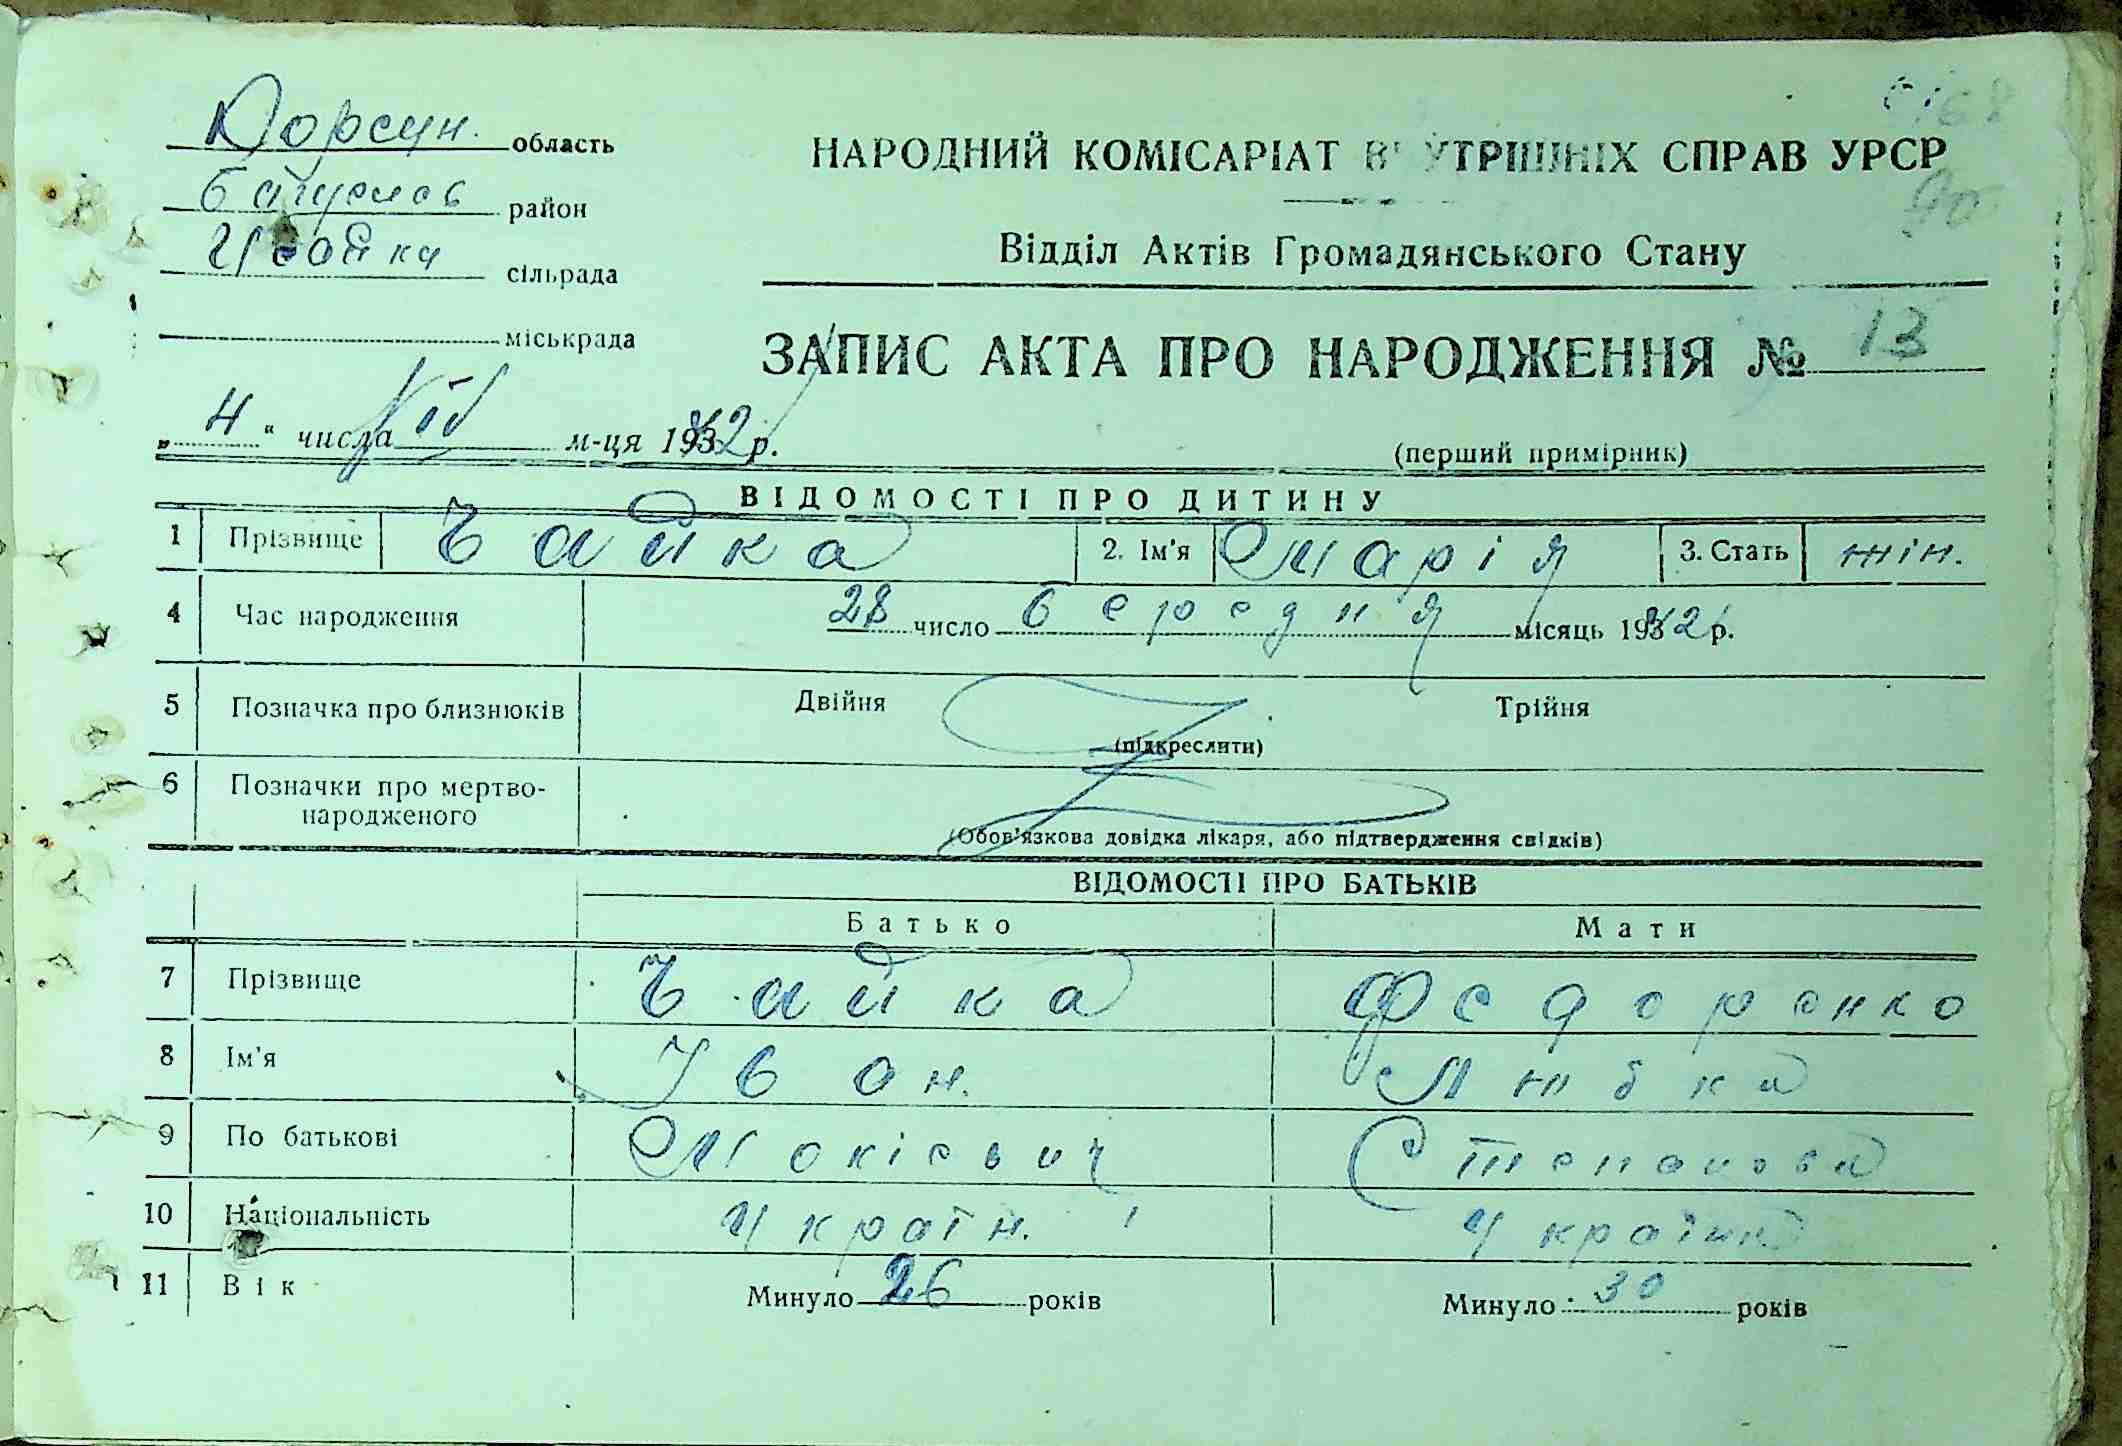 Корсун. область
район
сільрада
міськрада
НАРОДНИЙ КОМІСАРІАТ ВНУТРІШНІХ СПРАВ УРСР
90
Відділ Актів Громадянського Стану
ЗАПИС АКТА ПРО НАРОДЖЕННЯ № 13
„ 4 “ числа VIІ м-ця 1942 р.
(перший примірник)
ВІДОМОСТІ ПРО ДИТИНУ
1 Прізвище Чайка 2. Ім'я Марія 3. Стать жін.
4 Час народження 28 число березня місяць 1942 р.
5 Позначка про близнюків Двійня Трійня
(підкреслити)
6 Позначки про мертво-
народженого
(Обов'язкова довідка лікаря, або підтвердження свідків)
ВІДОМОСТІ ПРО БАТЬКІВ
Батько Мати
7 Прізвище Чайка Федоренко
8 Ім'я Іван. Любка
9 По батькові Мокієвич Степанова
10 Національність Україн. Українка
11 Вік Минуло 26 років Минуло 30 років